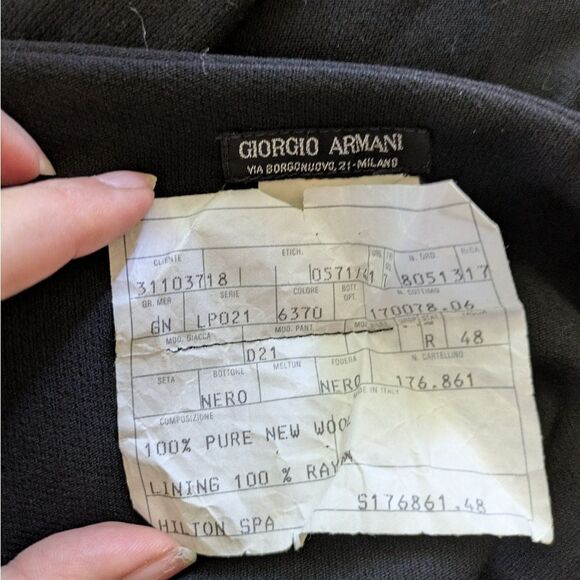 GIORGIO ARMANI
VIA BORGONUOVO, 21-MILANO
CLIENTE ETICH. N. ORD. RIGA
31103718 0571/41 7 8051317
GR. MER. SERIE COLORE BOTT. OPT. N. COTTIMO
GN LP021 6370 170078.06
MOD. GIACCA MOD. PANT.
D21 R 48
SETA BOTTONE MELTON FODERA N. CARTELLINO
NERO NERO 176.861
COMPOSIZIONE MADE IN ITALY
100% PURE NEW WOO
LINING 100 % RAY
HILTON SPA S176861.48